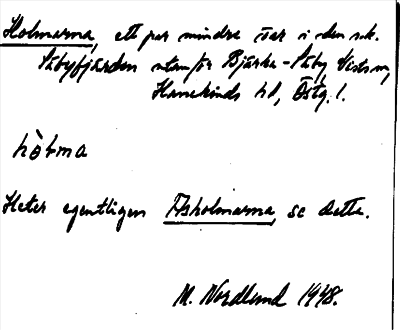 Holmarna, ett par mindre öar i den s.k.
Säbyfjärden utanför Bjärka-Säby, Vists sn,
Hanekinds hd, Östg. l.
hòlma
Heter egentligen Åsholmarna, se detta.
M. Nordlund 1948.